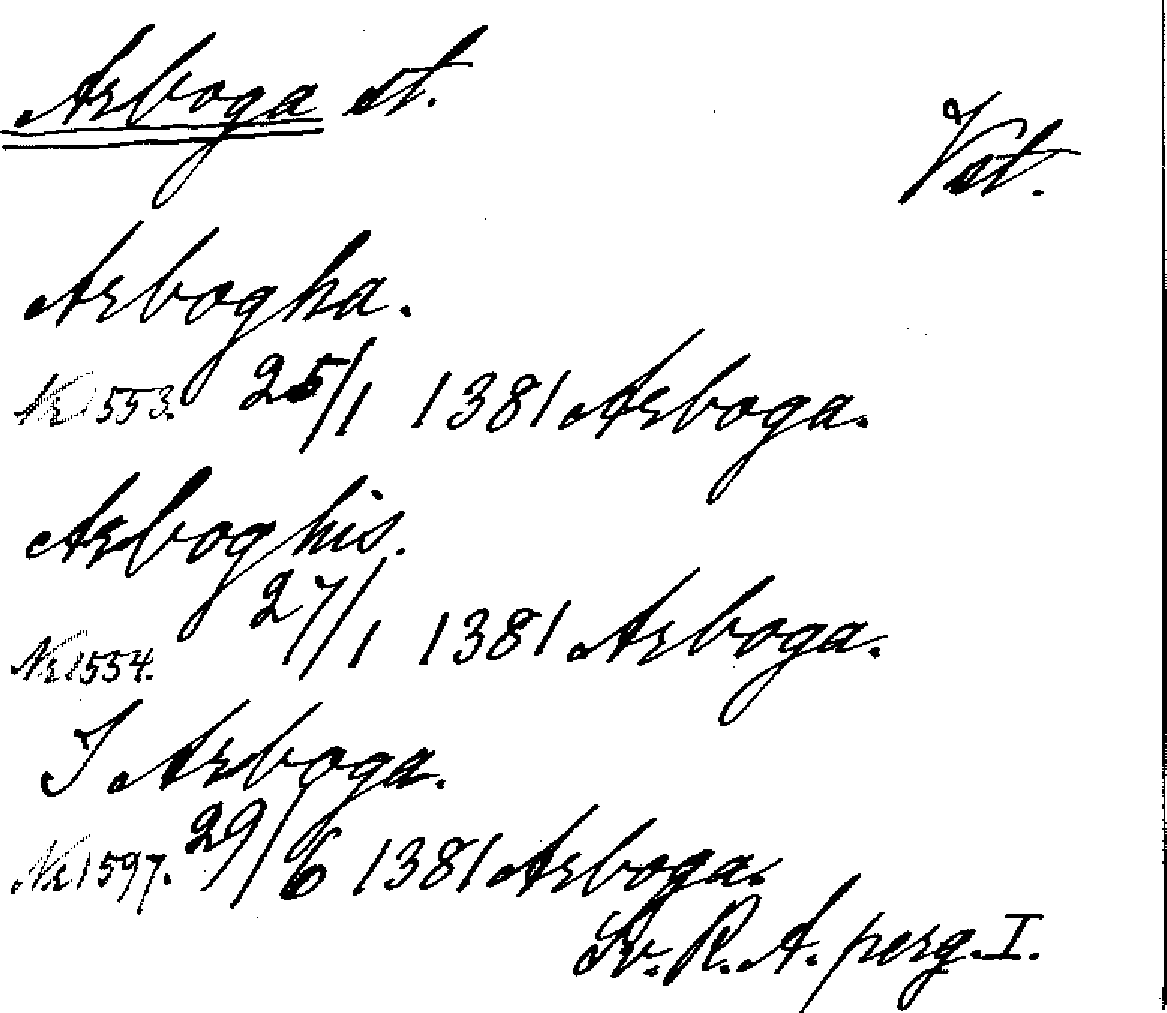 Arboga st.
Vst.
Arbogha.
Nr 1553. 25/1 1381 Arboga.
Arboghis.
Nr 1554. 27/1 1381 Arboga.
I Arboga.
Nr 1597. 29/6 1381 Arboga.
Sv. R. A. perg. I.